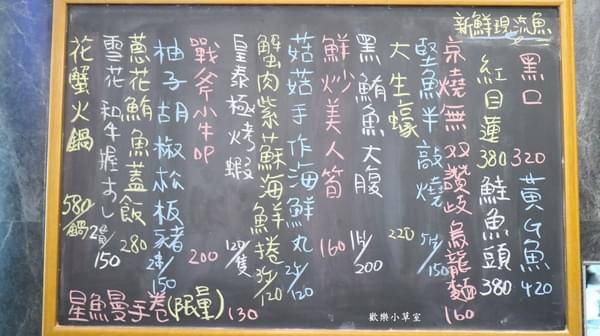 新鮮現流魚
黑口 320
黃G魚 420
紅目蓮 380
鮭魚頭 380
京燒無双讚岐烏龍麵 160
堅魚半敲燒 5片/150
大生蠔 220
黑鮪魚大腹 1片/200
鮮炒美人筍 160
菇菇手作海鮮丸 2個/120
蟹肉紫蘇海鮮捲 3個/120
皇泰極烤蝦 120/隻
戰斧小牛DP 200
柚子胡椒松板豬 2串/150
蔥花鮪魚蓋飯 280
雪花和牛握すし 2貫/150
花蟹火鍋 580/鍋
星魚曼手卷(限量) 130
歡樂小草室